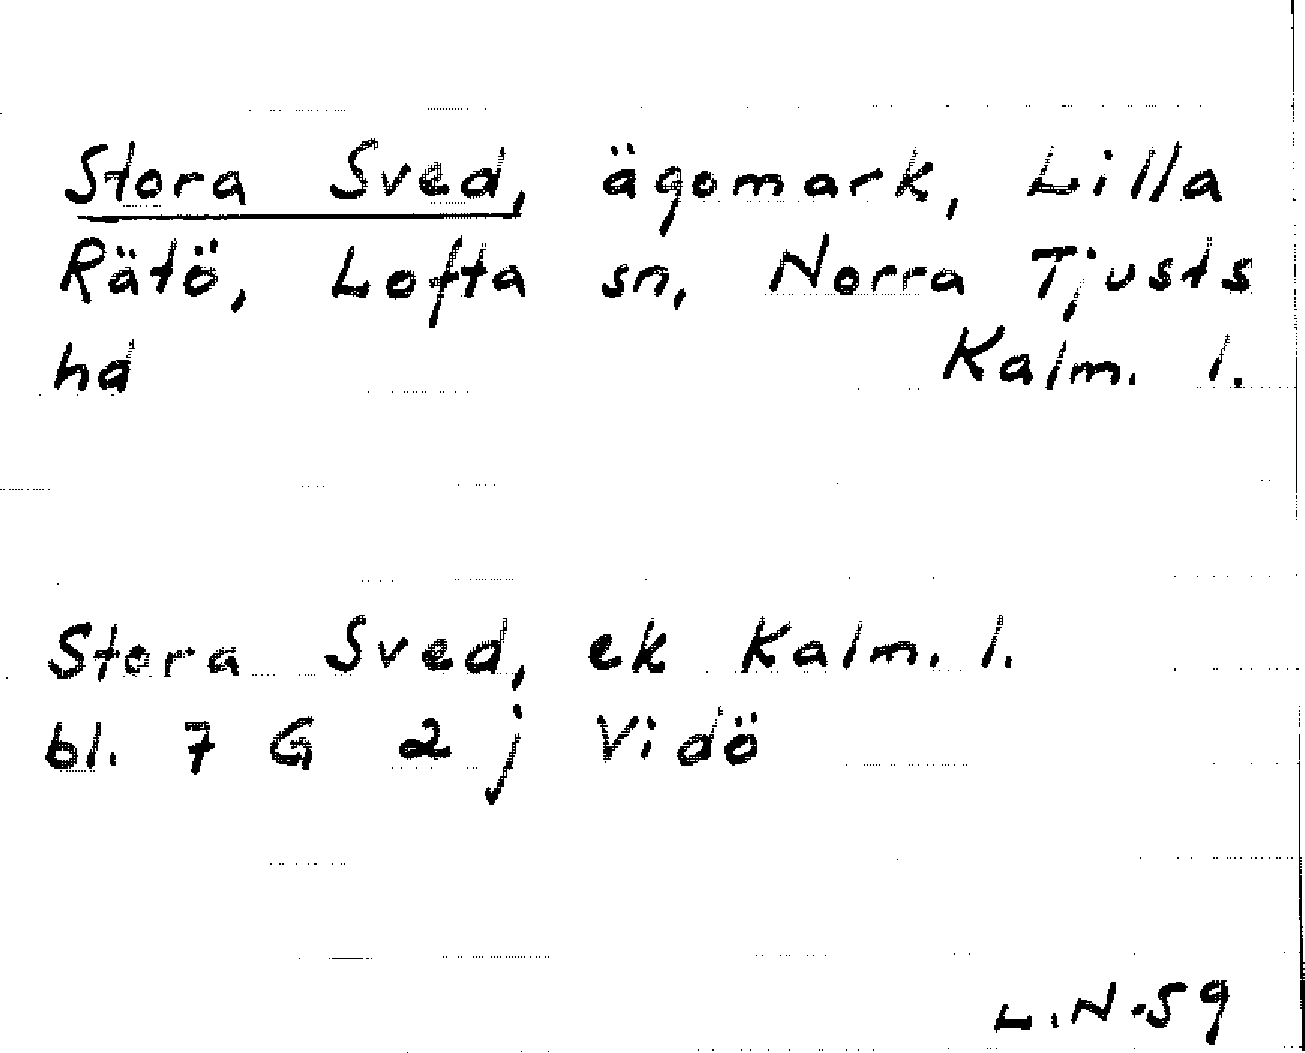 Stora Sved, ägomark, Lilla
Rätö, Lofta sn, Norra Tjusts
hd Kalm. l.
Stora Sved, ek Kalm. l.
bl. 7 G 2 j Vidö
L.N-59